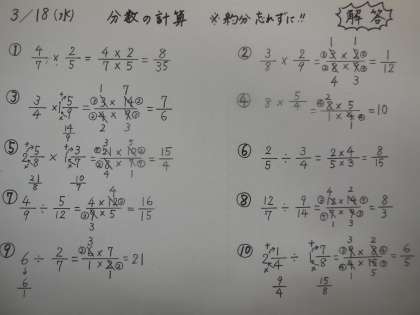 3/18(水) 分数の計算 ※約分忘れずに!! 解答
① 4/7 × 2/5 = 4×2/7×5 = 8/35
② 3/8 × 2/9 = 3×2/8×9 = 1/12
③ 3/4 × 1 5/9 = 3×14/4×9 = 7/6
14/9
④ 8 × 5/4 = 8×5/1×4 = 10
⑤ 2 5/8 × 1 3/7 = 21×10/8×7 = 15/4
21/8 10/7
⑥ 2/5 ÷ 3/4 = 2×4/5×3 = 8/15
⑦ 4/9 ÷ 5/12 = 4×12/9×5 = 16/15
⑧ 12/7 ÷ 9/14 = 12×14/7×9 = 8/3
⑨ 6 ÷ 2/7 = 6×7/1×2 = 21
6/1
⑩ 2 1/4 ÷ 1 7/8 = 9×8/4×15 = 6/5
9/4 15/8